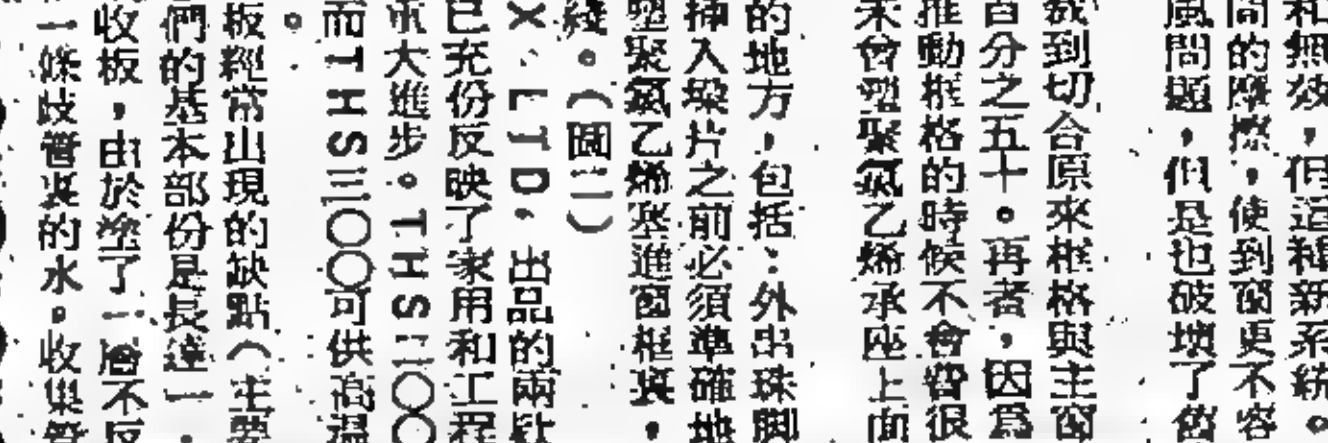 和無效，但這種新系統。
間的摩擦，使到窗更不容
風問題，但是也破壞了舊
裁到切合原來框格與主窗
百分之五十。再者，因爲
推動框格的時候不會費很
未會塑聚氯乙烯承座上面
的地方，包括：外出珠脚
插入樑片之前必須準確地
塑聚氯乙烯塞進窗框裏，
綫。（圖二）
X．LTD．出品的兩
已充份反映了家用和工程
重大進步。THS二〇〇
而THS三〇〇可供高温
。
板經常出現的缺點（主要
們的基本部份是長達一．
收板，由於塗了一層不反
一條歧管裏的水。收集管